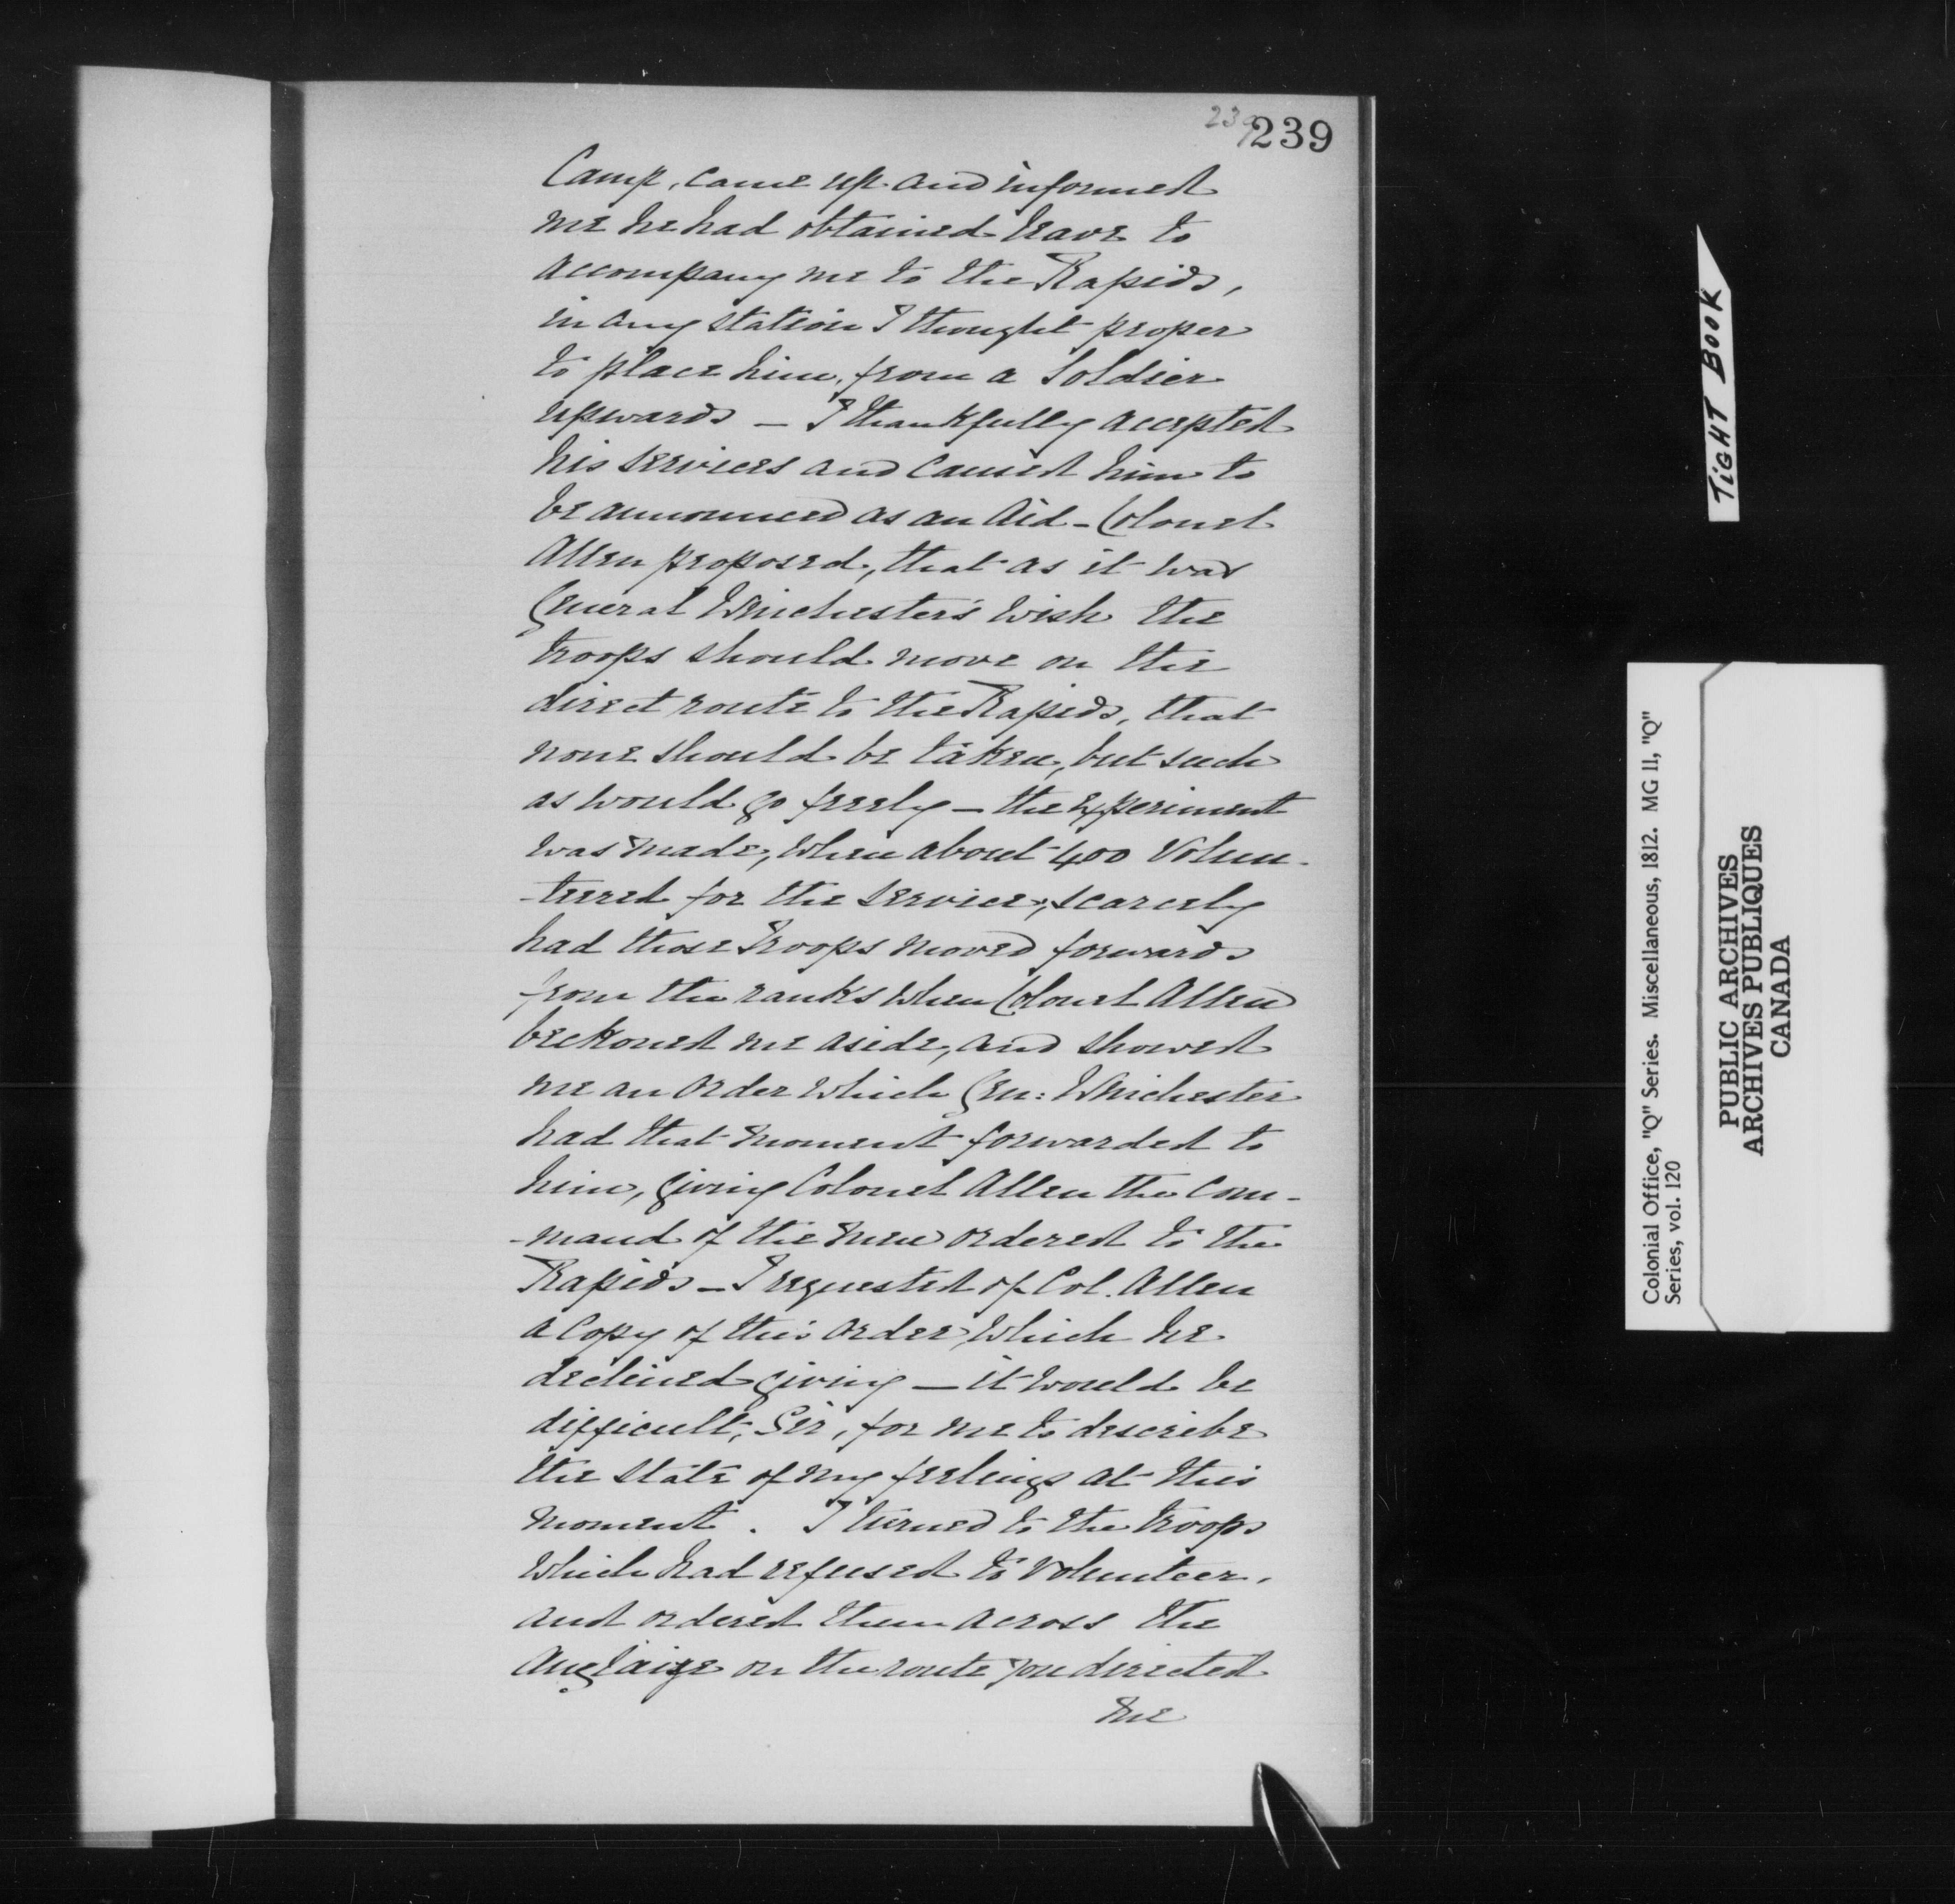 239
239
Camp, came up and informed
me he had obtained leave to
accompany me to the Rapids,
in any station I thought proper
to place him, from a Soldier
upwards — I thankfully accepted
his services and caused him to
be announced as an Aid - Colonel
Allen proposed, that as it was
General Winchester's wish the
troops should move on the
direct route to the Rapids, that
none should be taken, but such
as would go freely — the Experiment
was made, when about 400 Volun-
-teered for the service, scarcely
had those Troops moved forwards
from the ranks when Colonel Allen
beckoned me aside, and showed
me an order which Gen: Winchester
had that moment forwarded to
him, giving Colonel Allen the Com-
-mand of the men ordered to the
Rapids — I requested of Col. Allen
a Copy of this order which he
declined giving — it would be
difficult, Sir, for me to describe
the state of my feelings at this
moment. I turned to the troops
which had refused to volunteer,
and ordered them across the
Auglaize on the route you directed
me
TiGHT BOOK
Colonial Office, "Q" Series. Miscellaneous, 1812. MG 11, "Q"
Series, vol. 120
PUBLIC ARCHIVES
ARCHIVES PUBLIQUES
CANADA